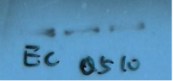 EC 0510